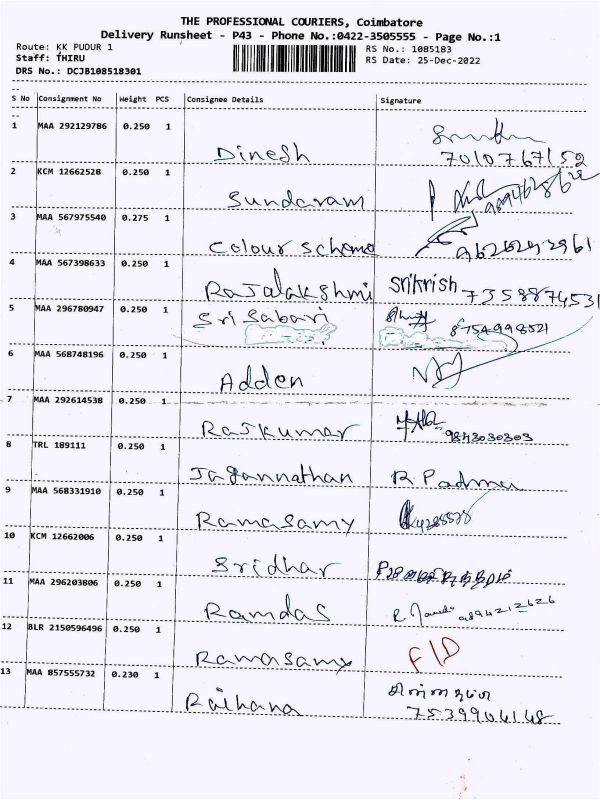 THE PROFESSIONAL COURIERS, Coimbatore
Delivery Runsheet - P43 - Phone No.:0422-3505555 - Page No.:1
Route: KK PUDUR 1
RS No.: 1085183
Staff: THIRU
RS Date: 25-Dec-2022
DRS No.: DCJB108518301
S No Consignment No Weight PCS Consignee Details Signature
1 MAA 292129786 0.250 1
Dinesh 7010767152
2 KCM 12662528 0.250 1
Sundaram
3 MAA 567975540 0.275 1
Colour Scheme 9626292961
4 MAA 567398633 0.250 1
Rajalakshmi Srikrish 7358874531
5 MAA 296780947 0.250 1
Sri Sabari 8754998521
6 MAA 568748196 0.250 1
Adden
7 MAA 292614538 0.250 1
Rajkumar 9843030303
8 TRL 189111 0.250 1
Jagannathan R Padma
9 MAA 568331910 0.250 1
Ramasamy
10 KCM 12662006 0.250 1
Sridhar
11 MAA 296203806 0.250 1
Ramdas 9894212626
12 BLR 2150596496 0.250 1
Ramasamy F/D
13 MAA 857555732 0.230 1
Raihana 7539904148